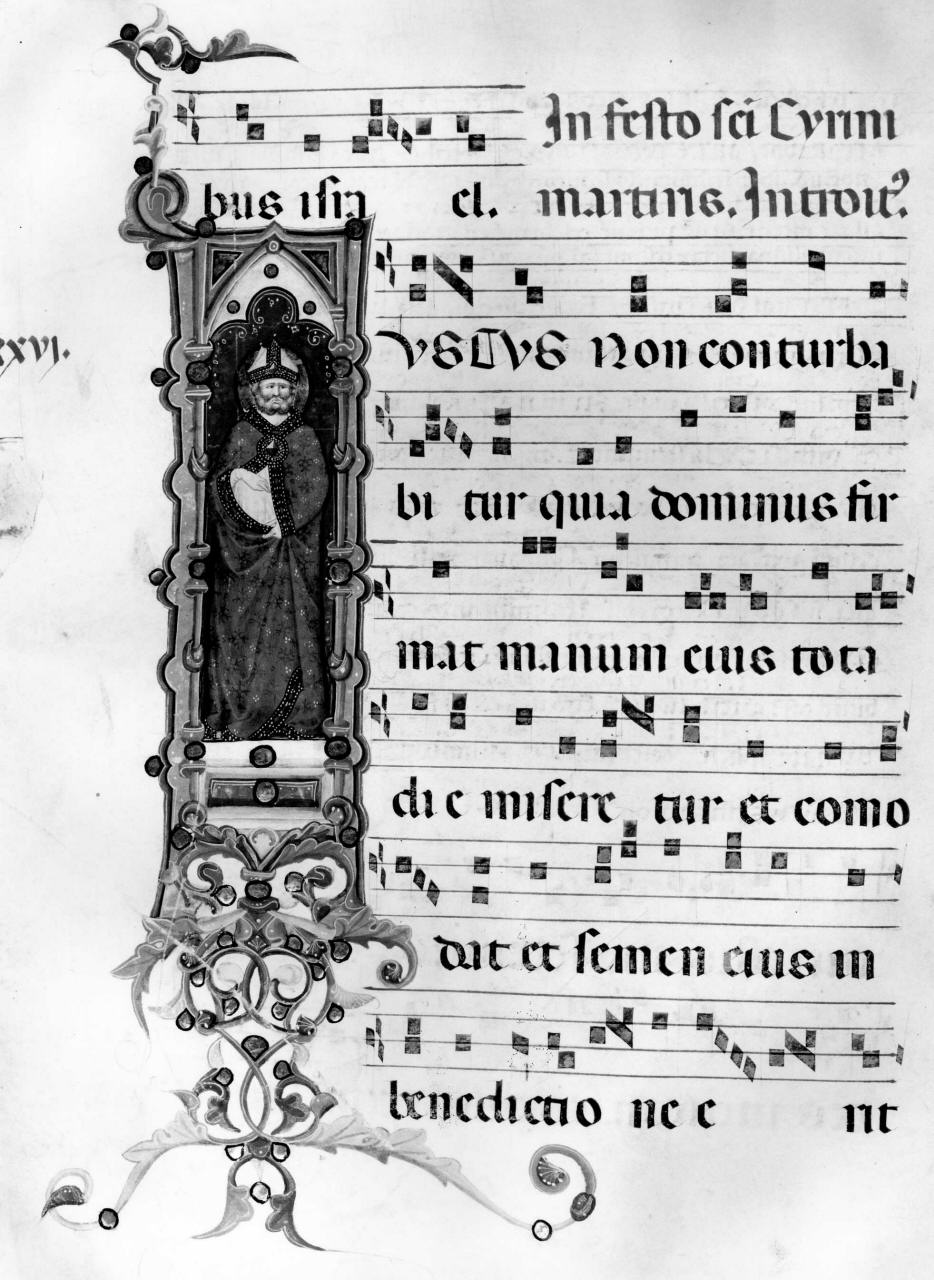 In festo scī Cyrini
bus isra el. martiris. Introitꝰ.
xxvj.
VSTVS Non conturba
bi tur quia dominus fir
mat manum eius tota
di e misere tur et como
dat et semen eius in
benedictio ne e rit